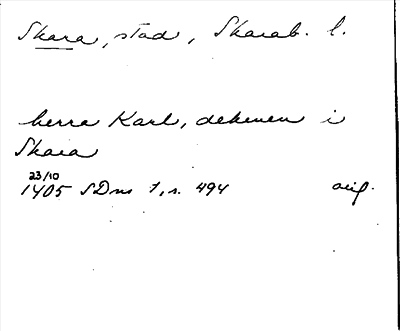 Skara, stad, Skarab. l.
herra Karl, dekenen i
Skara
23/10
1405 SDns 1, s. 494 orig.